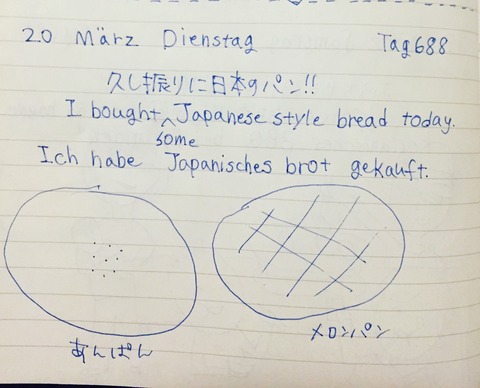 20 März Dienstag Tag688
久し振りに日本のパン!!
I bought some Japanese style bread today.
Ich habe Japanisches brot gekauft.
あんぱん
メロンパン